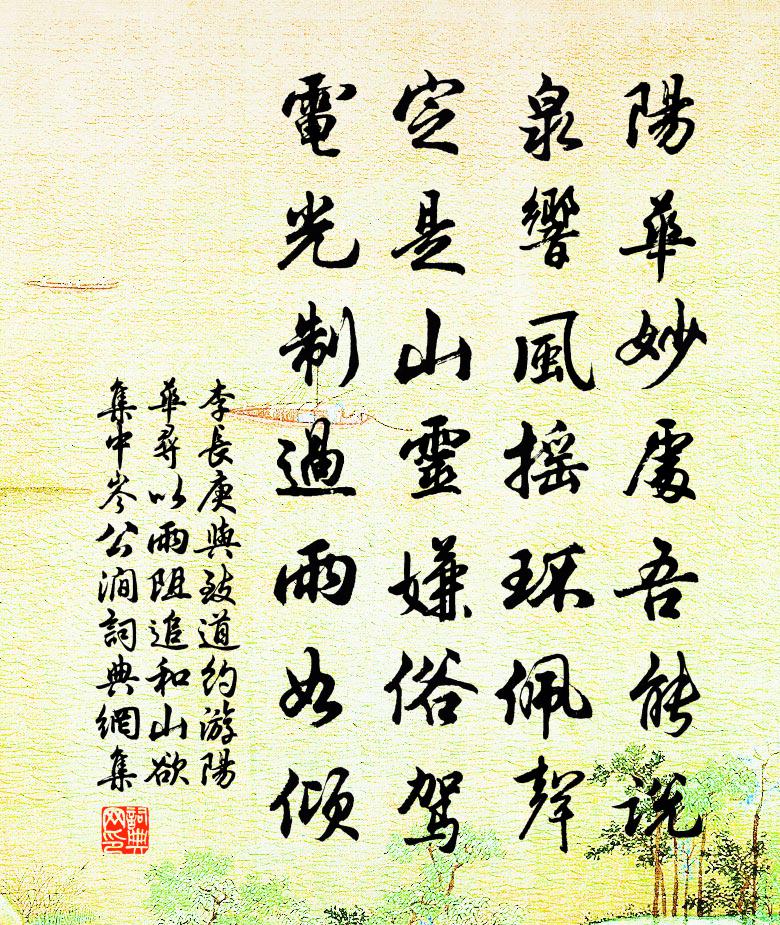 陽華妙處吾能説
泉響風摇環佩聲
定是山靈嫌俗駕
電光制過雨如傾
李長庚與致道約游陽
華尋以雨阻追和山欲
集中岑公澗詞典網集
詞典網印